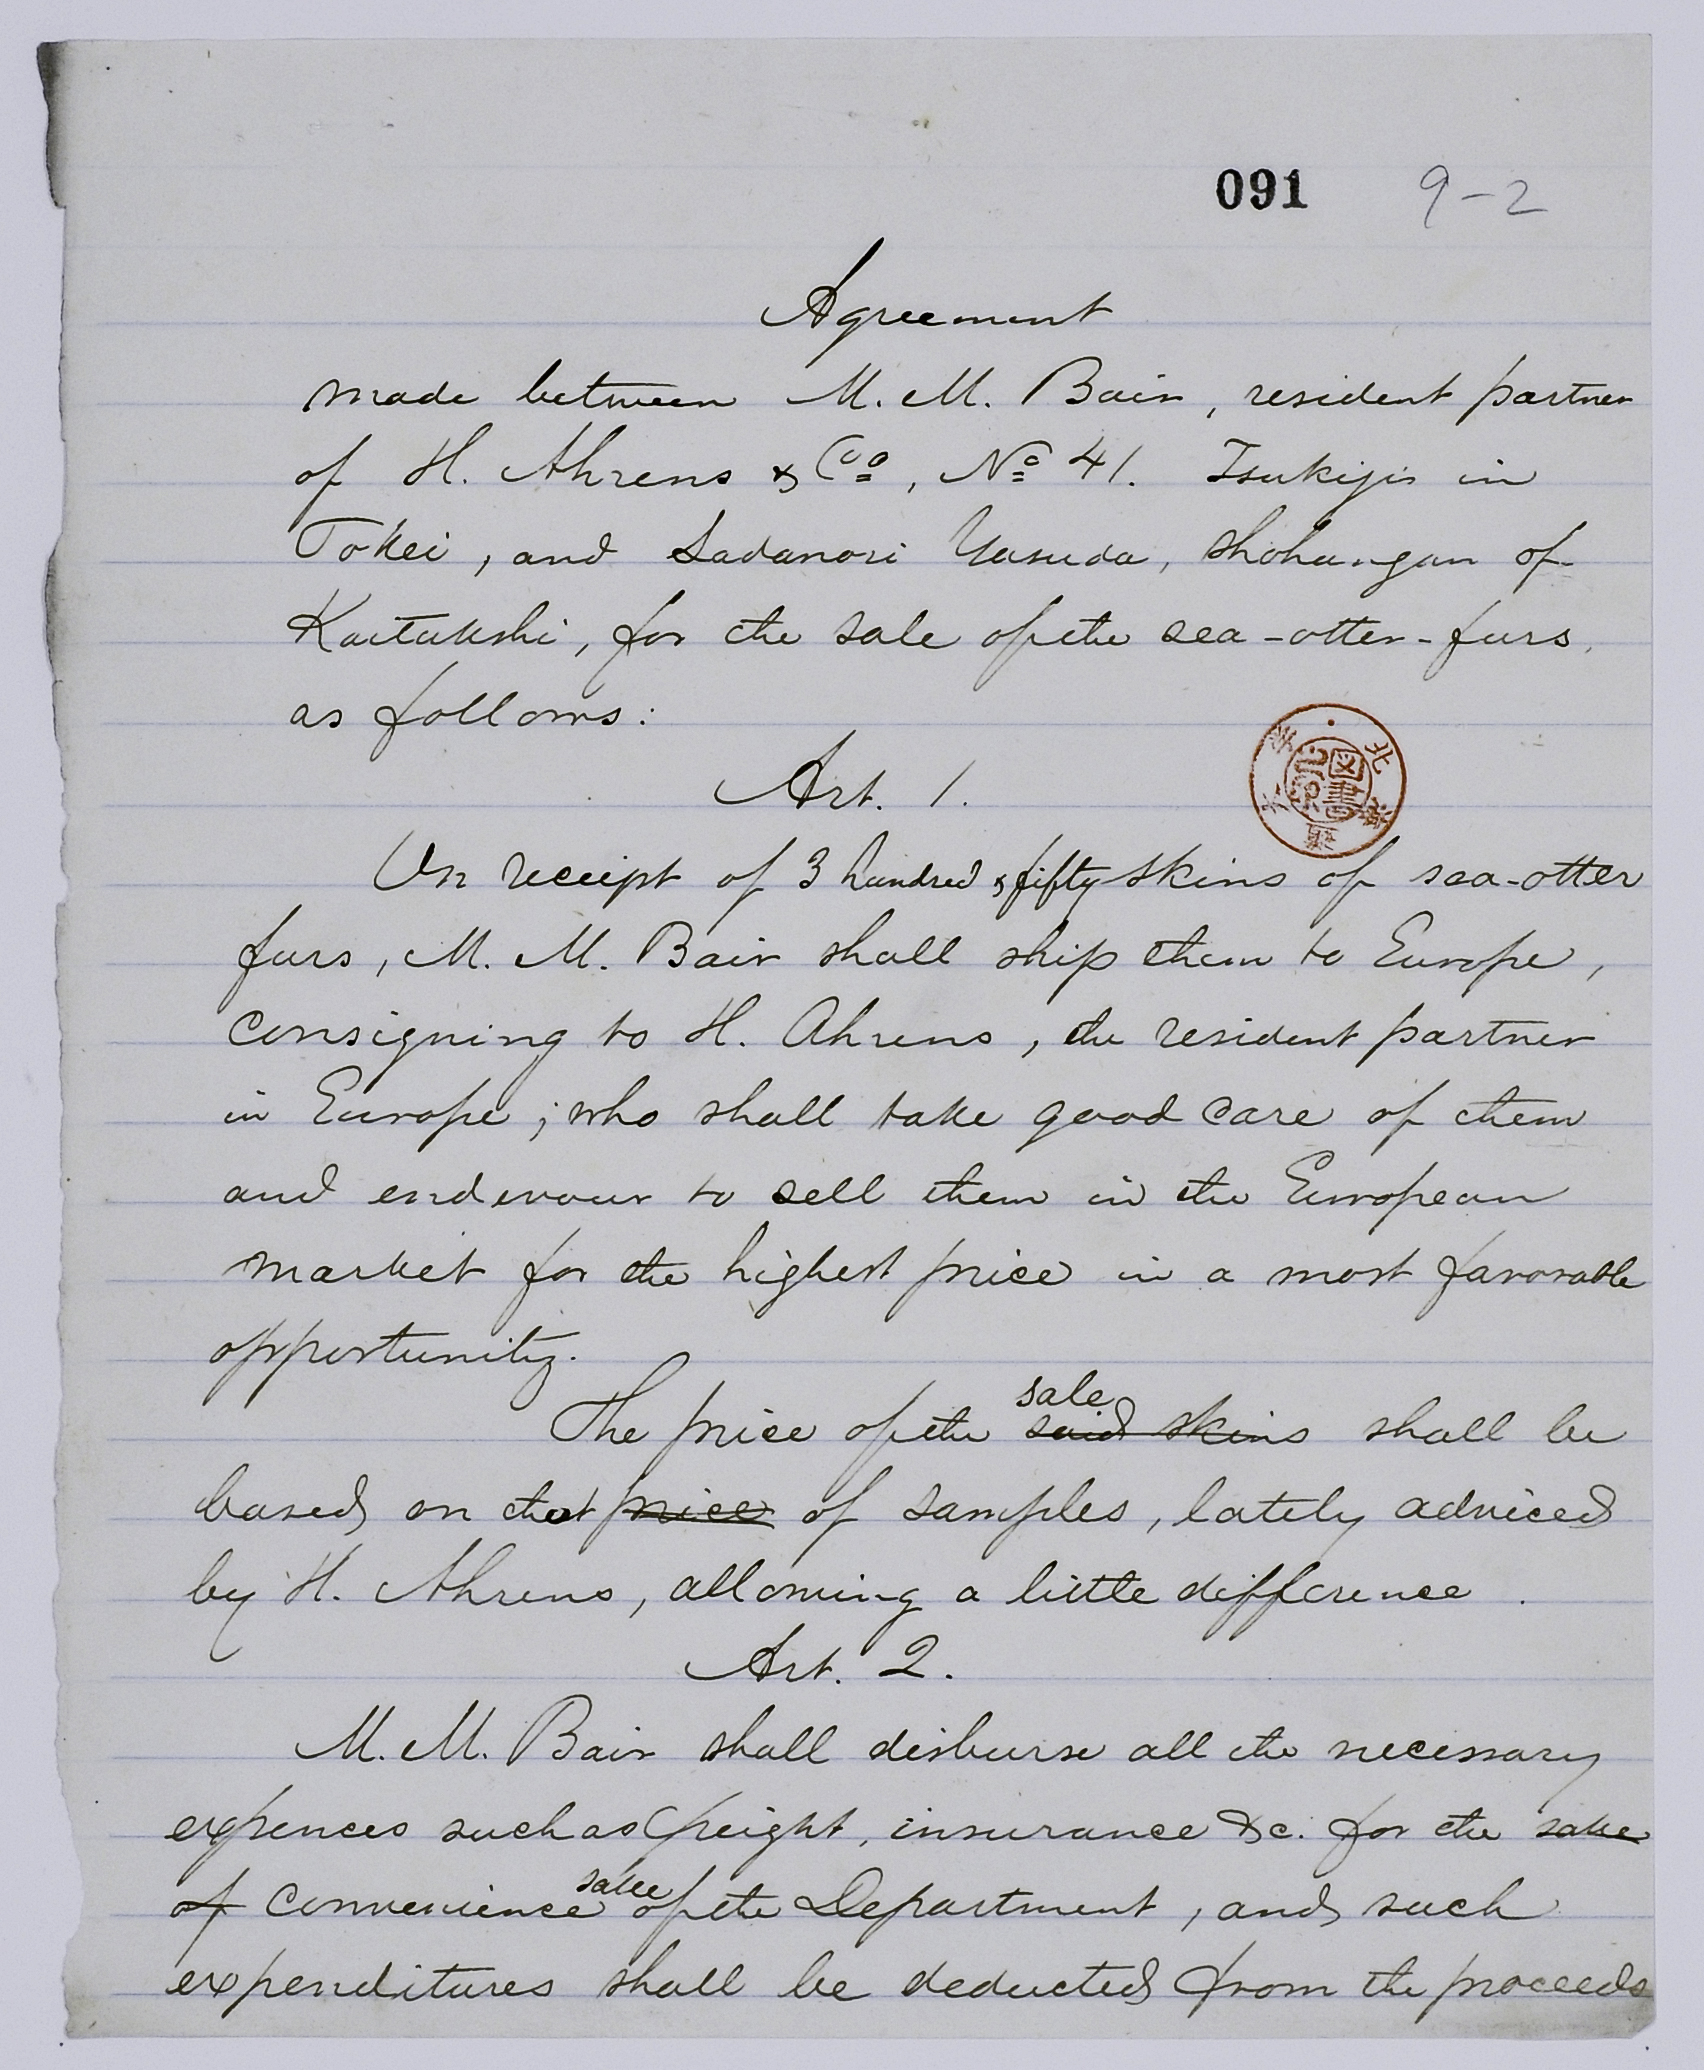 091 9-2
Agreement
made between M. M. Bair, resident partner
of H. Ahrens & Co, No 41. Tsukiji in
Tokei, and Sadanori Yasuda, Shohangan of
Kaitakshi, for the sale of the sea-otter-furs,
as follows:
Art. 1.
On receipt of 3 hundred & fifty skins of sea-otter
furs, M. M. Bair shall ship them to Europe,
consigning to H. Ahrens, the resident partner
in Europe; who shall take good care of them
and endevour to sell them in the European
market for the highest price in a most favorable
opportunity.
sale
The price of the said skins shall be
based on that price of samples, lately adviced
by H. Ahrens, allowing a little difference.
Art. 2.
M. M. Bair shall disburse all the necessary
expences such as freight, insurance &c. for the sake
sake
of convenience of the Department, and such
expenditures shall be deducted from the proceeds
北
図書